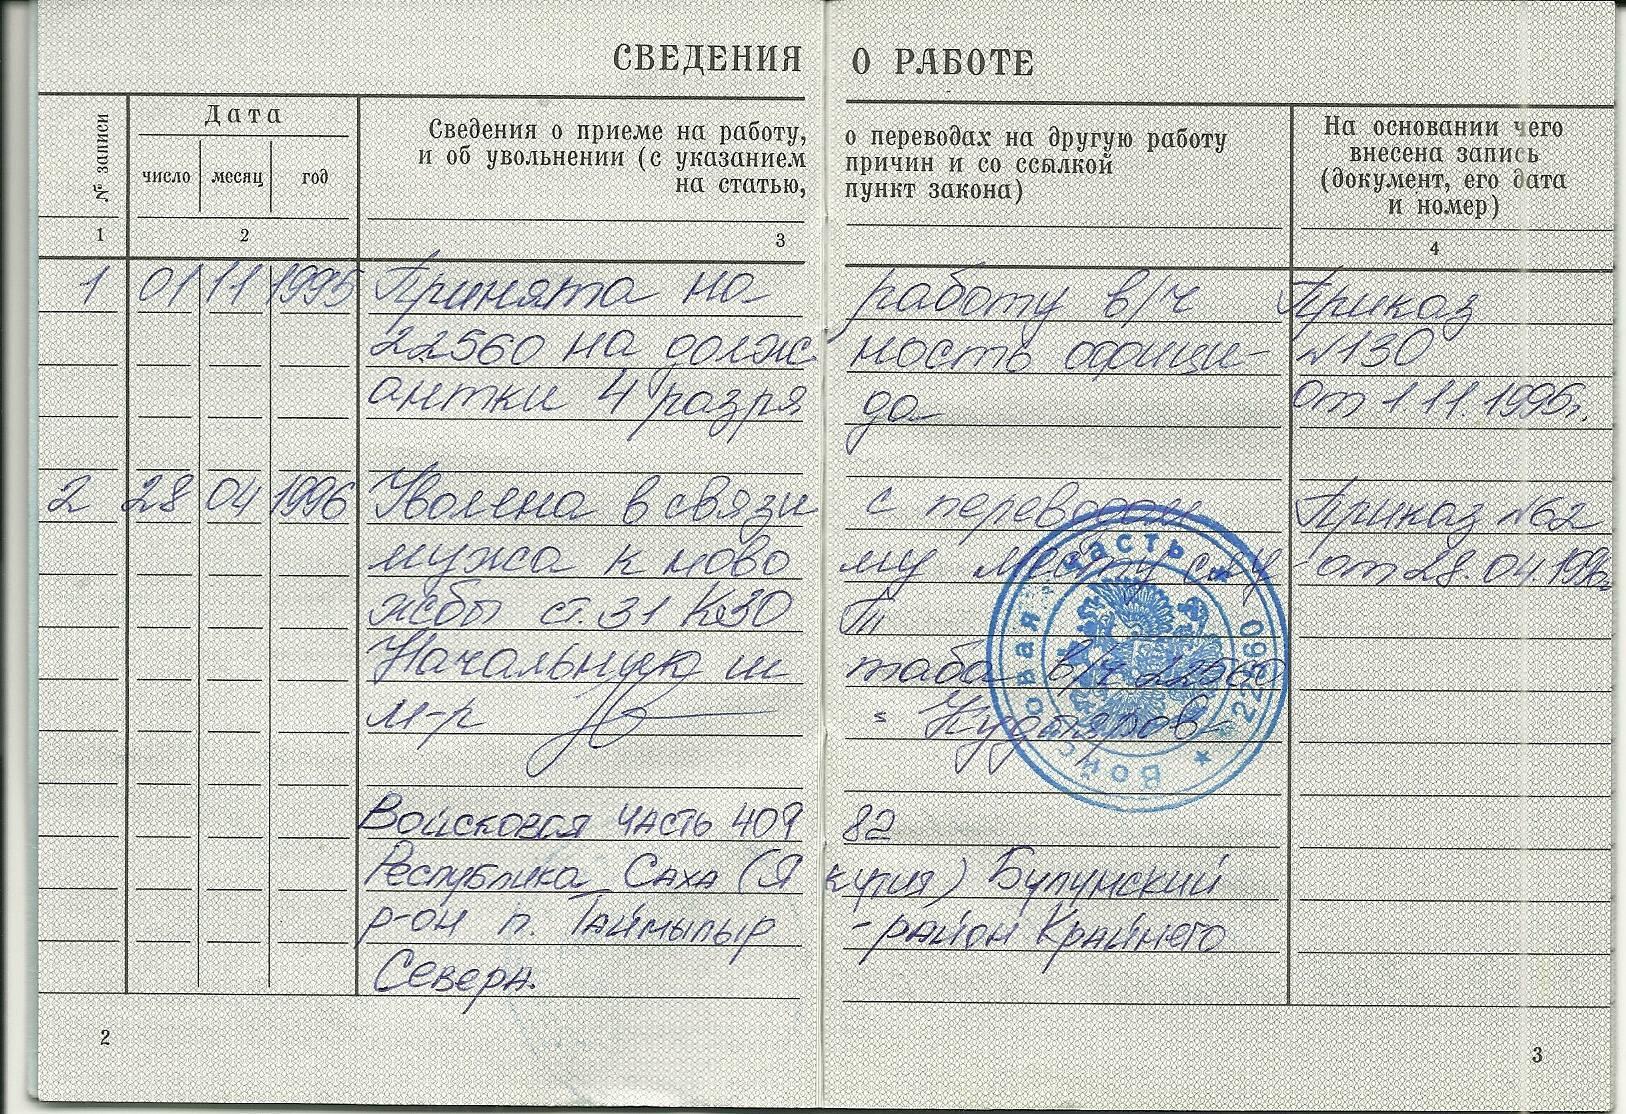 СВЕДЕНИЯ О РАБОТЕ
№ записи
Дата
число месяц год
Сведения о приеме на работу, о переводах на другую работу
и об увольнении (с указанием причин и со ссылкой
на статью, пункт закона)
На основании чего
внесена запись
(документ, его дата
и номер)
1 2 3 4
1 01 11 1995 Принята на работу в/ч Приказ
22560 на должность офици- №130
антки 4 разряда от 1.11.1995г.
2 28 04 1996 Уволена в связи с переводом Приказ №62
мужа к новому месту слу от 28.04.1996г.
жбы ст. 31 КЗО Т
Начальник штаба в/ч 22560
м-р Кудаяров
Войсковая часть * 22560 *
Войсковая часть 40982
Республика Саха (Якутия) Булунский
р-он п. Таймылыр - район Крайнего
Севера.
2
3